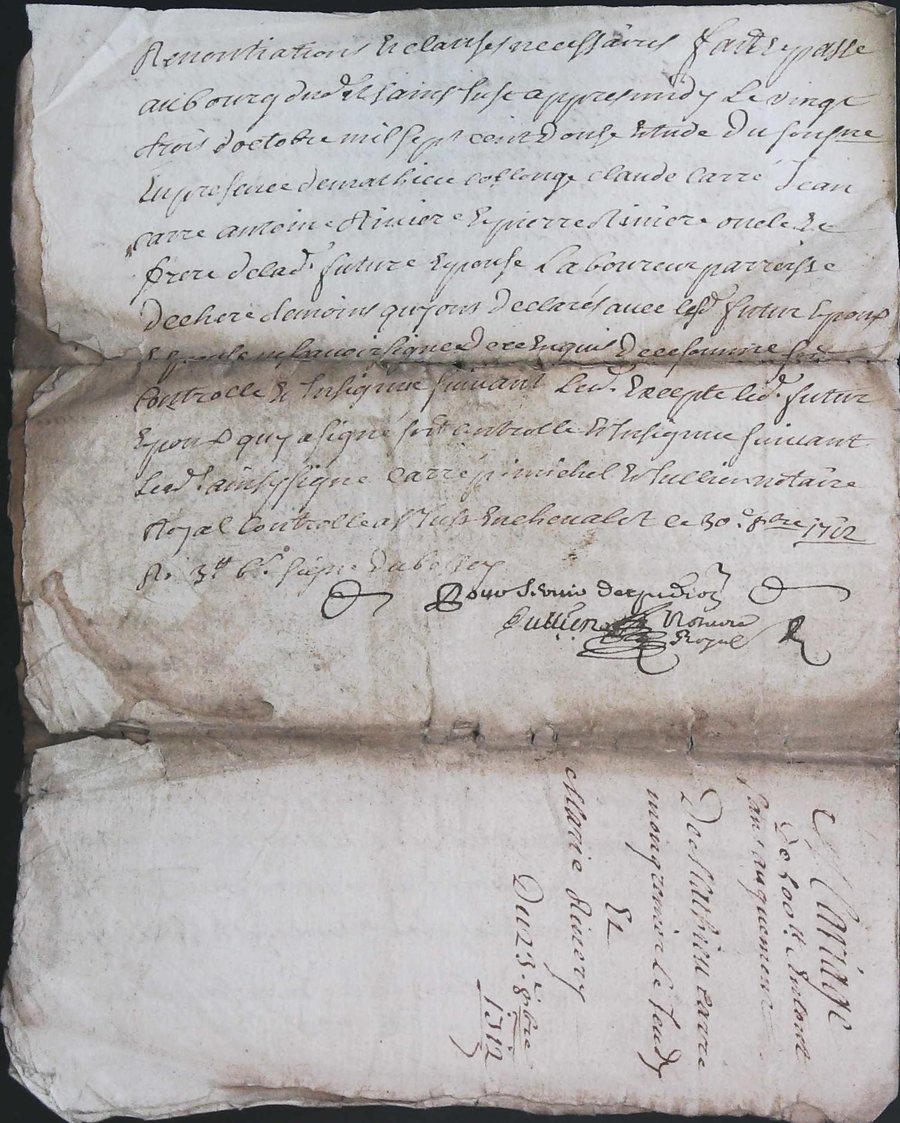 Renontiations & clauses necessaires fait & passe
au bourg dud. st saint just appres midy le vingt
trois d'octobre mil sept cent douse Estude du sousne
En presence de mathieu collonge claude carré Jean
carre antoine Riviere & pierre Riviere oncle &
frere de lad. future Epouse Laboureur parroisse
de chere temoins quy ont declarés avec lesd. futur Epoux
signe de ce Enquis
controlle & Insignue suivant Led. Excepte led. futur
Epoux quy a signé soit controlle & Insignue suivant
Led. ainsy signé Carré michel & Jullien notaire
Royal Controlle a st Just En chevalet le 30e 8bre 1712
R. 3tt 6s signé dubessey
Pour servir d'expedion
Jullien Notaire
Royal
Mariage
De 400tt En dot
sans augument
De Mathieu carre
mon grand
Et
Marie Riviere
Du 23e 8bre
1712